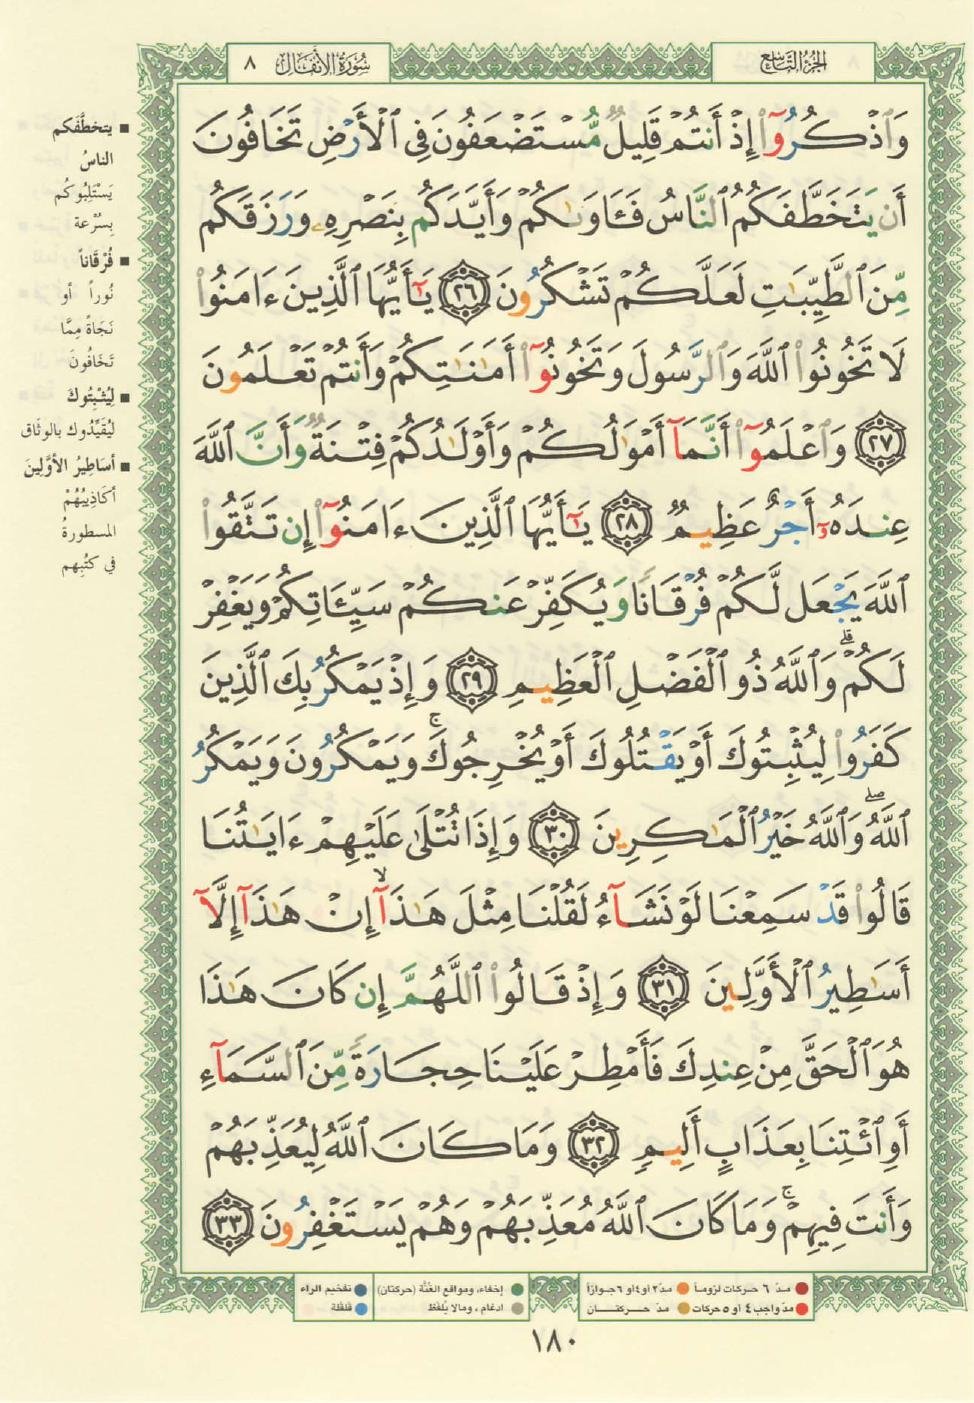 الجزء التاسع
سورة الأنفال ٨
وَٱذْكُرُوٓا۟ إِذْ أَنتُمْ قَلِيلٌ مُّسْتَضْعَفُونَ فِى ٱلْأَرْضِ تَخَافُونَ
أَن يَتَخَطَّفَكُمُ ٱلنَّاسُ فَـَٔاوَىٰكُمْ وَأَيَّدَكُم بِنَصْرِهِۦ وَرَزَقَكُم
مِّنَ ٱلطَّيِّبَـٰتِ لَعَلَّكُمْ تَشْكُرُونَ ٢٦ يَـٰٓأَيُّهَا ٱلَّذِينَ ءَامَنُوا۟
لَا تَخُونُوا۟ ٱللَّهَ وَٱلرَّسُولَ وَتَخُونُوٓا۟ أَمَـٰنَـٰتِكُمْ وَأَنتُمْ تَعْلَمُونَ
٢٧ وَٱعْلَمُوٓا۟ أَنَّمَآ أَمْوَٰلُكُمْ وَأَوْلَـٰدُكُمْ فِتْنَةٌ وَأَنَّ ٱللَّهَ
عِندَهُۥٓ أَجْرٌ عَظِيمٌ ٢٨ يَـٰٓأَيُّهَا ٱلَّذِينَ ءَامَنُوٓا۟ إِن تَتَّقُوا۟
ٱللَّهَ يَجْعَل لَّكُمْ فُرْقَانًا وَيُكَفِّرْ عَنكُمْ سَيِّـَٔاتِكُمْ وَيَغْفِرْ
لَكُمْ ۗ وَٱللَّهُ ذُو ٱلْفَضْلِ ٱلْعَظِيمِ ٢٩ وَإِذْ يَمْكُرُ بِكَ ٱلَّذِينَ
كَفَرُوا۟ لِيُثْبِتُوكَ أَوْ يَقْتُلُوكَ أَوْ يُخْرِجُوكَ ۚ وَيَمْكُرُونَ وَيَمْكُرُ
ٱللَّهُ ۖ وَٱللَّهُ خَيْرُ ٱلْمَـٰكِرِينَ ٣٠ وَإِذَا تُتْلَىٰ عَلَيْهِمْ ءَايَـٰتُنَا
قَالُوا۟ قَدْ سَمِعْنَا لَوْ نَشَآءُ لَقُلْنَا مِثْلَ هَـٰذَآ ۙ إِنْ هَـٰذَآ إِلَّآ
أَسَـٰطِيرُ ٱلْأَوَّلِينَ ٣١ وَإِذْ قَالُوا۟ ٱللَّهُمَّ إِن كَانَ هَـٰذَا
هُوَ ٱلْحَقَّ مِنْ عِندِكَ فَأَمْطِرْ عَلَيْنَا حِجَارَةً مِّنَ ٱلسَّمَآءِ
أَوِ ٱئْتِنَا بِعَذَابٍ أَلِيمٍ ٣٢ وَمَا كَانَ ٱللَّهُ لِيُعَذِّبَهُمْ
وَأَنتَ فِيهِمْ ۚ وَمَا كَانَ ٱللَّهُ مُعَذِّبَهُمْ وَهُمْ يَسْتَغْفِرُونَ ٣٣
يتخطَّفَكم
الناسُ
يَسْتَلِبُوكُم
بِسُرْعة
فُرْقَاناً
نُوراً أو
نَجَاةً مِمَّا
تَخَافُونَ
لِيُثْبِتُوكَ
لِيُقَيِّدُوك بالوثَاق
أَسَاطِيرُ الأوَّلِينَ
أكَاذِيبُهُمْ
المسطورةُ
في كتُبِهم
مدّ ٦ حركات لزوماً
مدّ ٢ أو ٤ أو ٦ جوازاً
مدّ واجب ٤ أو ٥ حركات
مدّ حركتان
إخفاء، ومواقع الغُنَّة (حركتان)
ادغام، ومالا يُلفَظ
تفخيم الراء
قلقلة
١٨٠